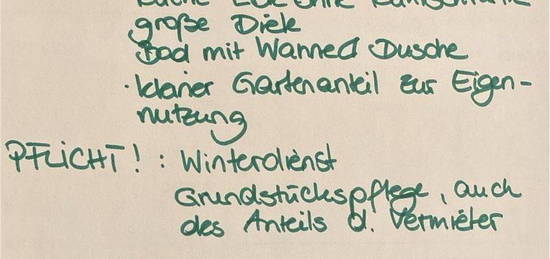 große Diele
Bad mit Wanne & Dusche
· kleiner Gartenanteil zur Eigen-
nutzung
PFLICHT! : Winterdienst
Grundstückspflege, auch
des Anteils d. Vermieter